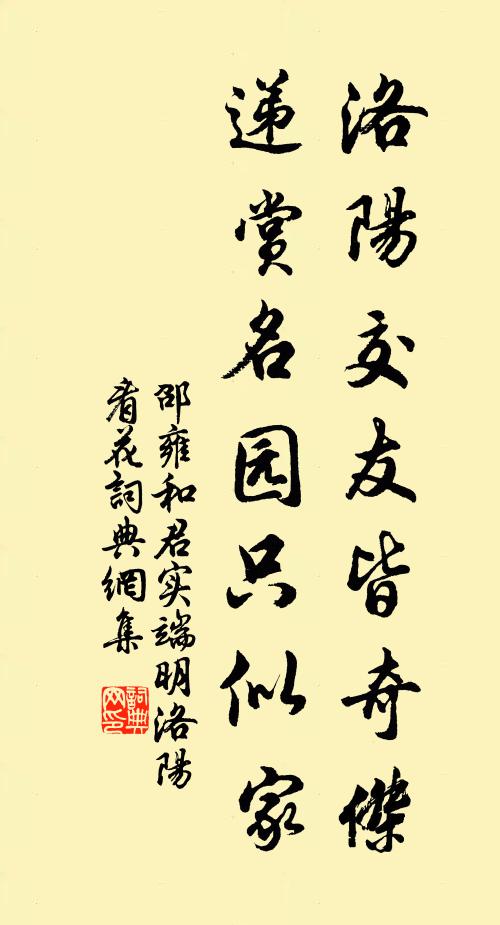 洛陽交友皆奇傑
遞赏名园只似家
邵雍和君实端明洛陽
看花詞典網集
詞典网印